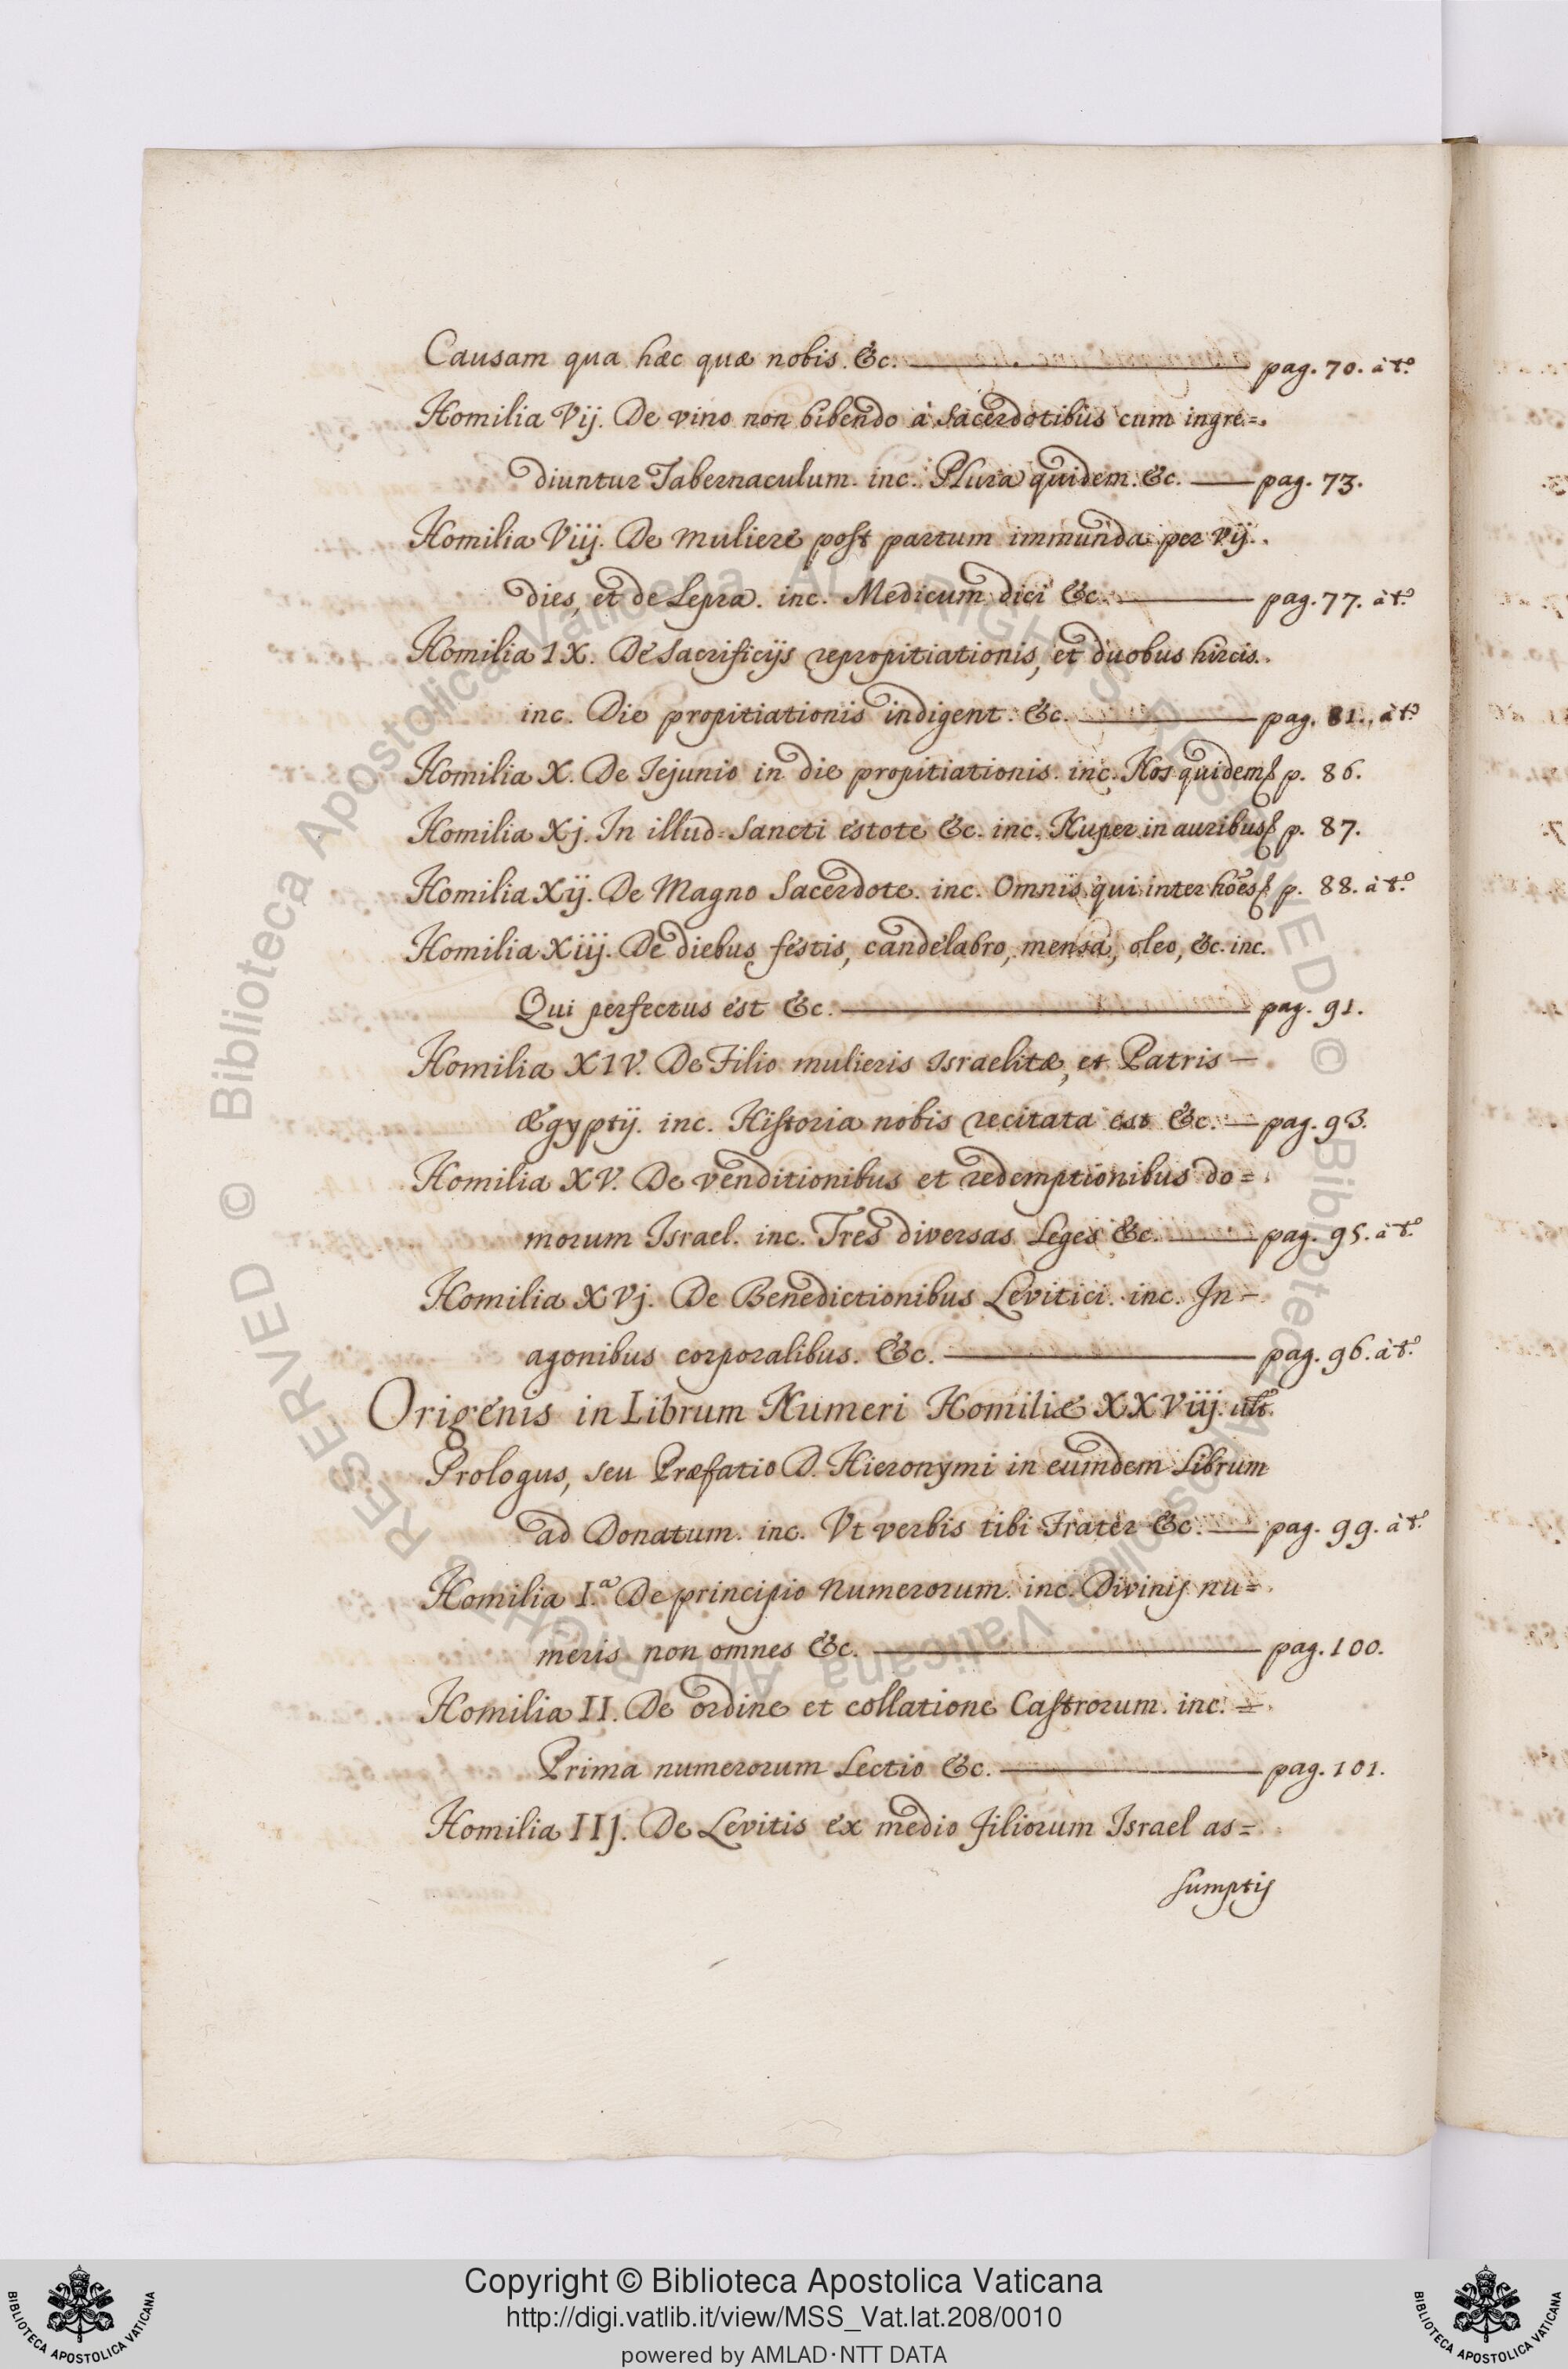 Causam qua hæc quæ nobis. &c. pag. 70. à tº.
Homilia Vij. De vino non bibendo à Sacerdotibus cum ingre=
diuntur Tabernaculum. inc. Plura quidem. &c. pag. 73.
Homilia Viij. De muliere post partum immunda per vij.
dies, et de Lepra. inc. Medicum dici &c. pag. 77. à tº.
Homilia IX. De Sacrificijs repropitiationis, et duobus hircis.
inc. Die propitiationis indigent. &c. pag. 81. à tº.
Homilia X. De Jejunio in die propitiationis. inc. Nos quidem p. 86.
Homilia Xj. In illud Sancti estote &c. inc. Nuper in auribus p. 87.
Homilia Xij. De Magno Sacerdote. inc. Omnis qui inter hões p. 88. à tº.
Homilia Xiij. De diebus festis, candelabro, mensa, oleo, &c. inc.
Qui perfectus est &c. pag. 91.
Homilia XIV. De Filio mulieris Israelitæ, et Patris —
Ægyptij. inc. Historia nobis recitata est &c. pag. 93.
Homilia XV. De venditionibus et redemptionibus do=
morum Israel. inc. Tres diversas Leges &c. pag. 95. à tº.
Homilia XVj. De Benedictionibus Levitici. inc. In —
agonibus corporalibus. &c. pag. 96. à tº.
Origenis in Librum Numeri Homiliæ XXViij.
Prologus, seu Præfatio D. Hieronymi in eumdem Librum
ad Donatum. inc. Vt verbis tibi Frater &c. pag. 99. à tº.
Homilia I.ª De principio Numerorum. inc. Divinis nu=
meris non omnes &c. pag. 100.
Homilia II. De ordine et collatione Castrorum. inc. =
Prima numerorum Lectio &c. pag. 101.
Homilia IIj. De Levitis ex medio filiorum Israel as=
sumptis
© Biblioteca Apostolica Vaticana ALL RIGHTS RESERVED © Biblioteca Apostolica Vaticana ALL RIGHTS RESERVED
BIBLIOTECA APOSTOLICA VATICANA
Copyright © Biblioteca Apostolica Vaticana
http://digi.vatlib.it/view/MSS_Vat.lat.208/0010
powered by AMLAD·NTT DATA
BIBLIOTECA APOSTOLICA VATICANA